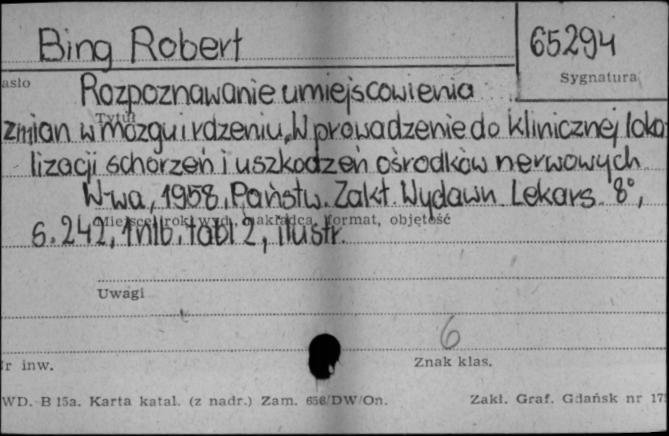 Bing Robert
65294
asło
Sygnatura
Rozpoznawanie umiejscowienia
Tytuł
zmian w mózgu i rdzeniu. Wprowadzenie do klinicznej loka-
lizacji schorzeń i uszkodzeń ośrodków nerwowych
W-wa, 1958, Państw. Zakł. Wydawn. Lekars. 8°,
Miejsce, rok wyd., nakładca, format, objętość
s. 242, 1 nlb. tabl 2, ilustr.
Uwagi
6
r inw.
Znak klas.
WD. B 15a. Karta katal. (z nadr.) Zam. 656/DW/On.
Zakł. Graf. Gdańsk nr 17